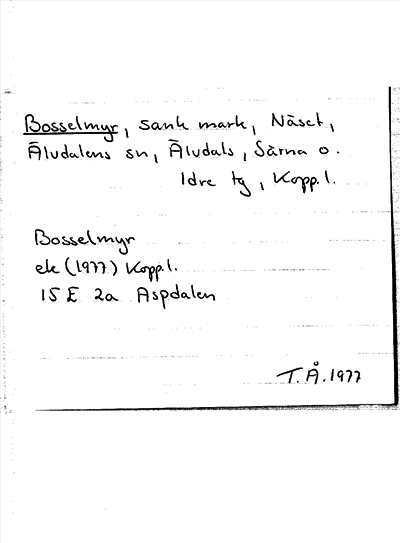 Bosselmyr, sank mark, Näset,
Älvdalens sn, Älvdals, Särna o.
Idre tg, Kopp. l.
Bosselmyr
ek (1977) Kopp. l.
15 E 2a Aspdalen
T.Å. 1977